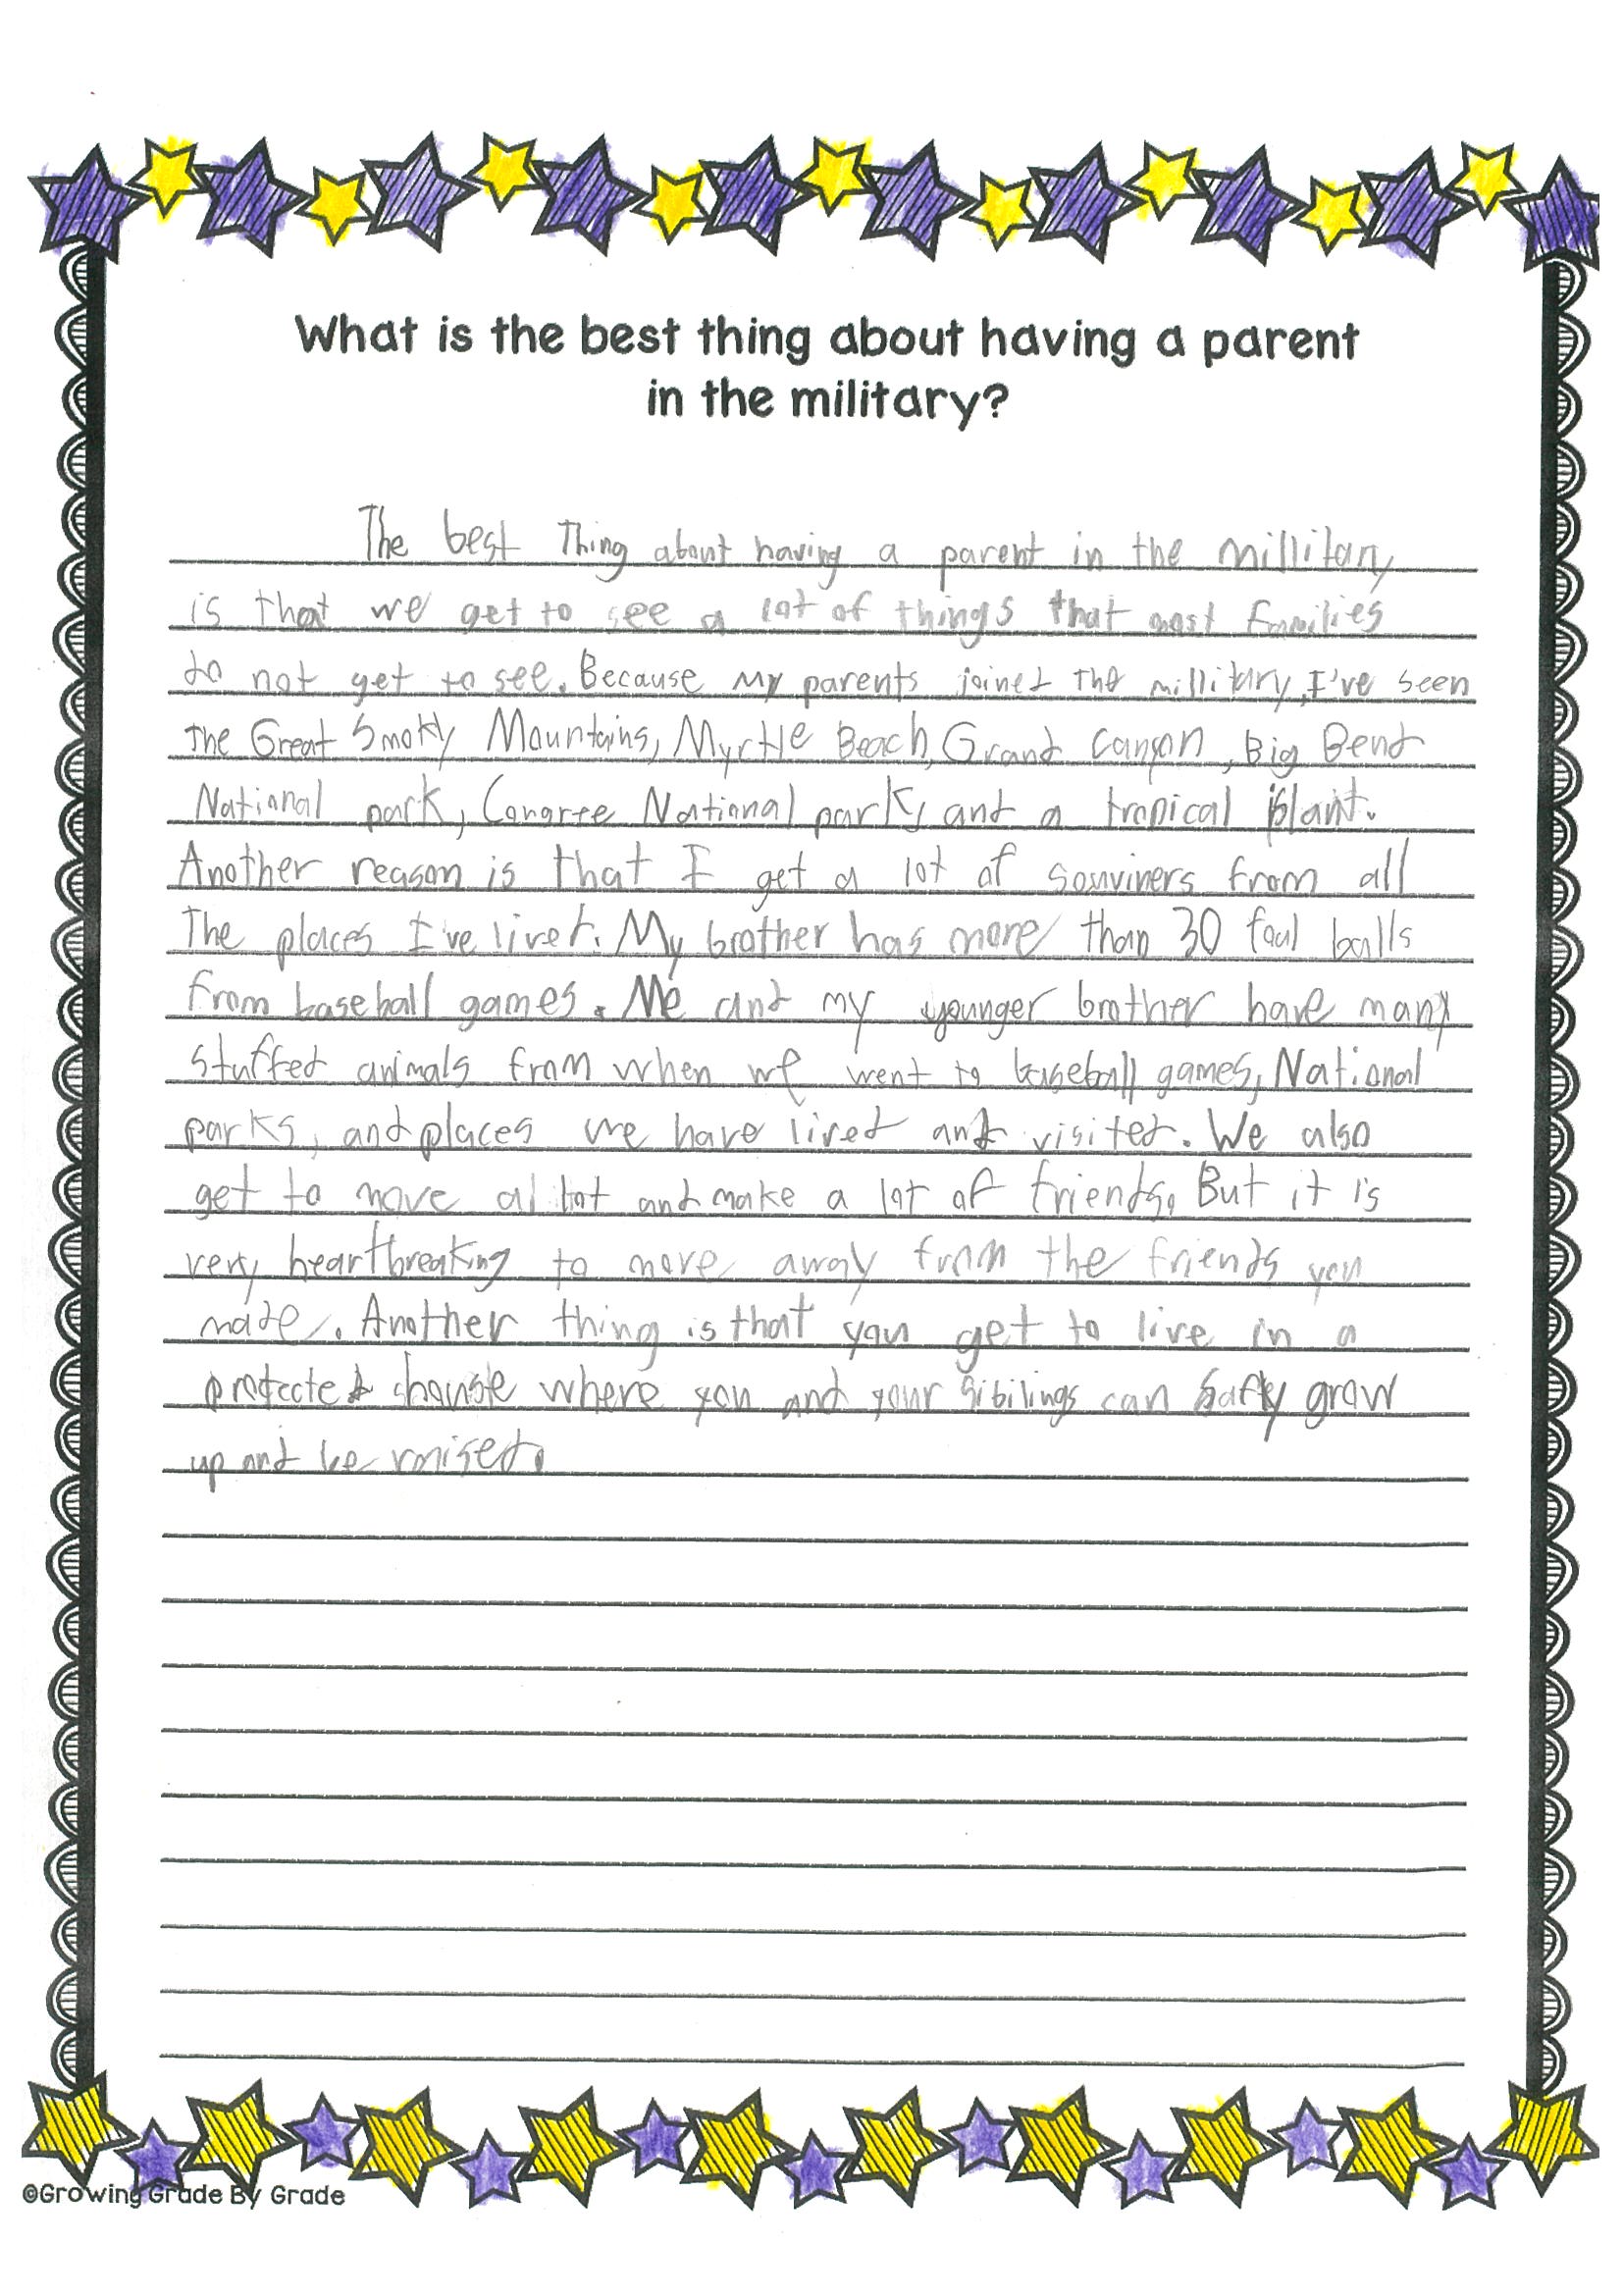 What is the best thing about having a parent
in the military?
The best Thing about having a parent in the millitary
is that we get to see a lot of things that most families
do not get to see. Because my parents joined the millitary, I've seen
the Great Smoky Mountains, Myrtle Beach, Grand Canyon, Big Bend
National park, Congree National park, and a tropical island.
Another reason is that I get a lot of souviners from all
The places I've lived. My brother has more than 30 foul balls
from baseball games. Me and my younger brother have many
stuffed animals from when we went to baseball games, National
parks, and places we have lived and visited. We also
get to move a lot and make a lot of friends. But it is
very heartbreaking to move away from the friends you
made. Another thing is that you get to live in a
protected house where you and your sibilings can safly grow
up and be raised.
©Growing Grade By Grade